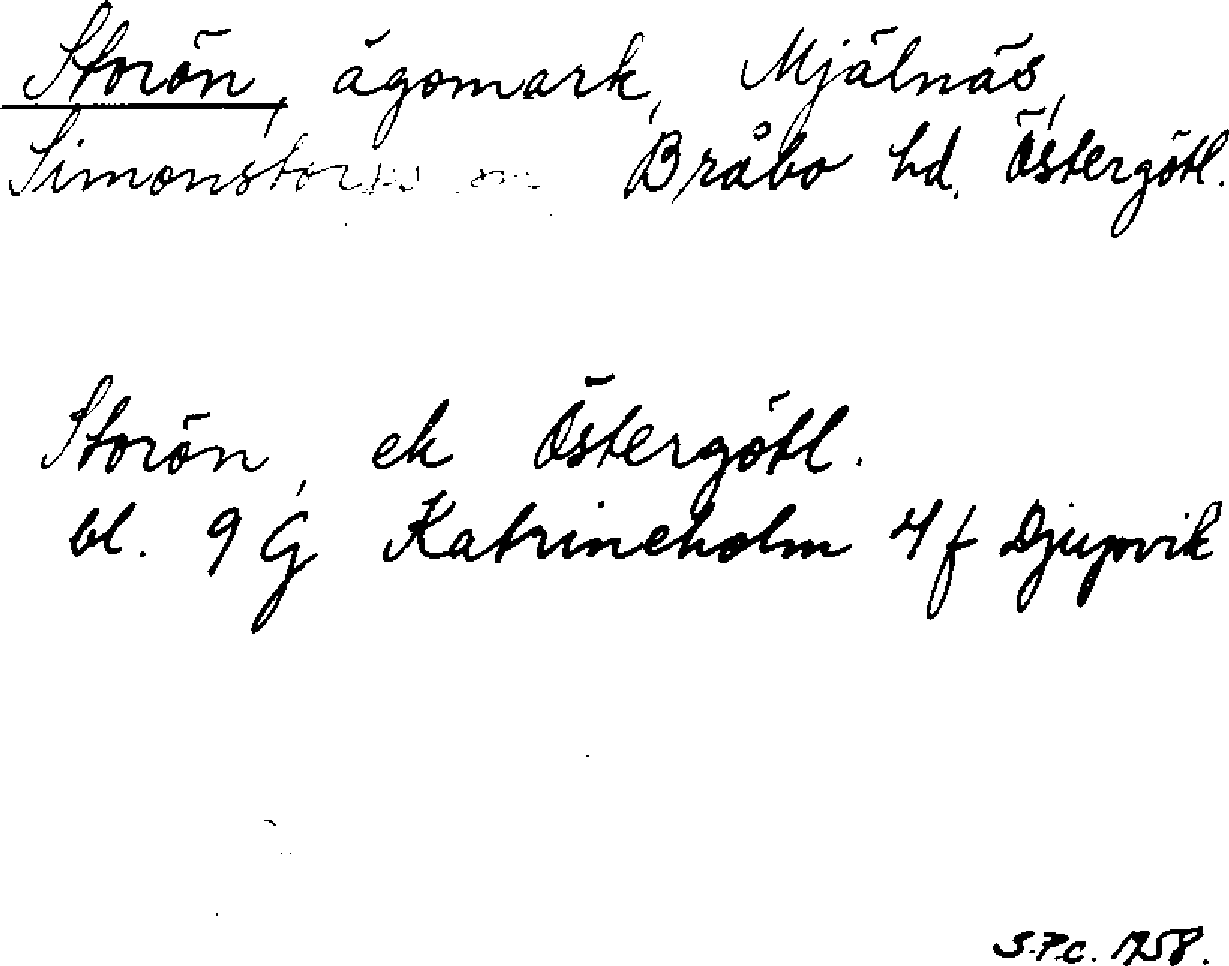 Storön, ägomark, Mjälnäs,
Simonstorps sn Bråbo hd. Östergötl.
Storön, ek Östergötl.
bl. 9 G Katrineholm 4f Djupvik
S.P.C. 1758.